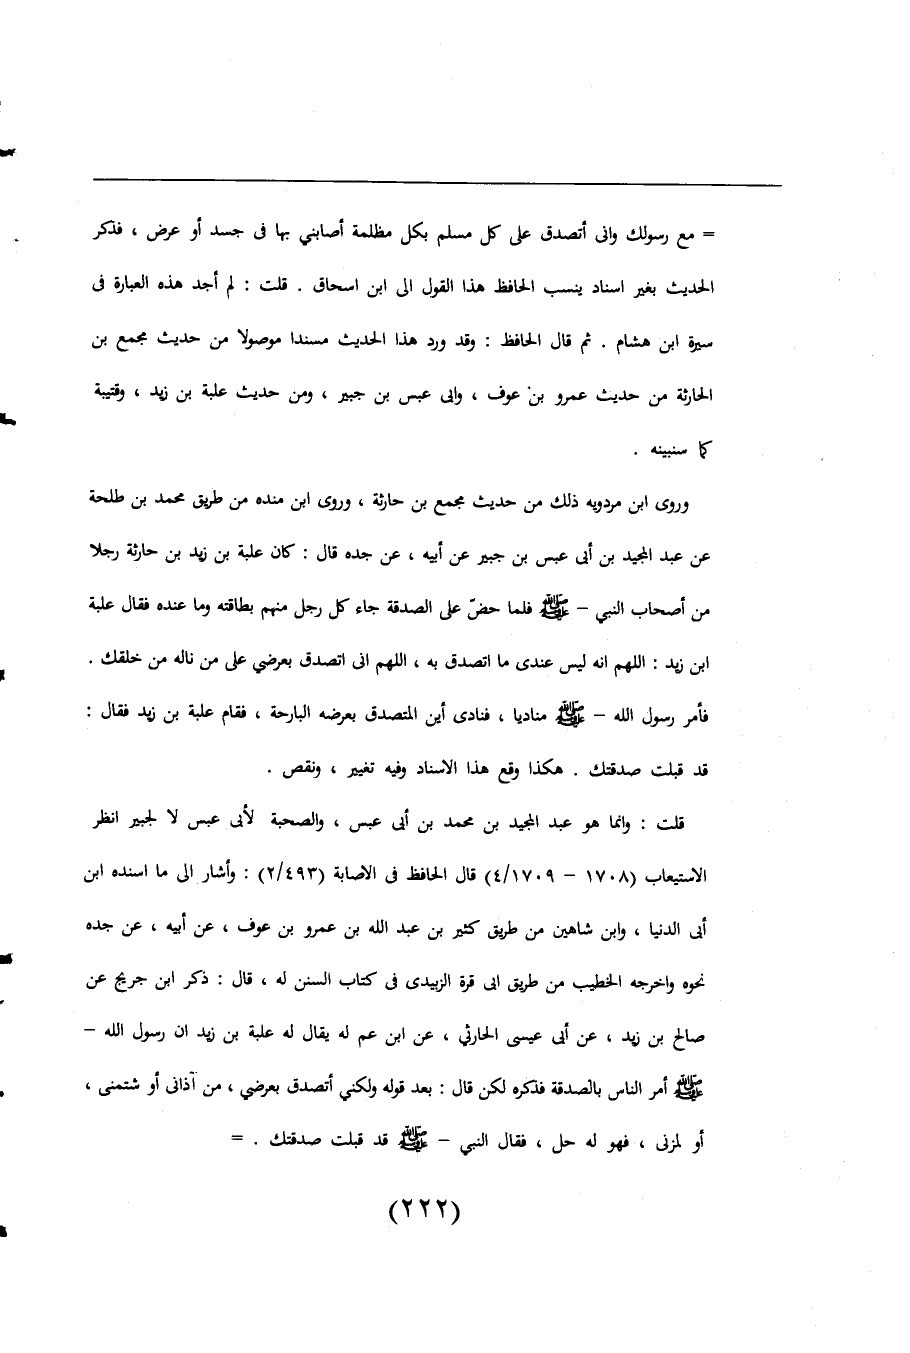 = مع رسولك وانى أتصدق على كل مسلم بكل مظلمة أصابني بها فى جسد أو عرض ، فذكر
الحديث بغير اسناد ينسب الحافظ هذا القول الى ابن اسحاق . قلت : لم أجد هذه العبارة فى
سيرة ابن هشام . ثم قال الحافظ : وقد ورد هذا الحديث مسندا موصولا من حديث مجمع بن
الحارثة من حديث عمرو بن عوف ، وابى عبس بن جبير ، ومن حديث علبة بن زيد ، وقتيبة
كما سنبينه .
وروى ابن مردويه ذلك من حديث مجمع بن حارثة ، وروى ابن منده من طريق محمد بن طلحة
عن عبد المجيد بن أبى عبس بن جبير عن أبيه ، عن جده قال : كان علبة بن زيد بن حارثة رجلا
من أصحاب النبي – ﷺ فلما حضّ على الصدقة جاء كل رجل منهم بطاقته وما عنده فقال علبة
ابن زيد : اللهم انه ليس عندى ما اتصدق به ، اللهم انى اتصدق بعرضي على من ناله من خلقك .
فأمر رسول الله – ﷺ مناديا ، فنادى أين المتصدق بعرضه البارحة ، فقام علبة بن زيد فقال :
قد قبلت صدقتك . هكذا وقع هذا الاسناد وفيه تغيير ، ونقص .
قلت : وانما هو عبد المجيد بن محمد بن أبى عبس ، والصحبة لأبى عبس لا لجبير انظر
الاستيعاب (١٧٠٨ – ٤/١٧٠٩) قال الحافظ فى الاصابة (٢/٤٩٣) : وأشار الى ما اسنده ابن
أبى الدنيا ، وابن شاهين من طريق كثير بن عبد الله بن عمرو بن عوف ، عن أبيه ، عن جده
نحوه واخرجه الخطيب من طريق ابى قرة الزبيدى فى كتاب السنن له ، قال : ذكر ابن جريج عن
صالح بن زيد ، عن أبى عيسى الحارثي ، عن ابن عم له يقال له علبة بن زيد ان رسول الله –
ﷺ أمر الناس بالصدقة فذكره لكن قال : بعد قوله ولكني أتصدق بعرضي ، من آذانى أو شتمنى ،
أو لمزنى ، فهو له حل ، فقال النبي – ﷺ قد قبلت صدقتك . =
(٢٢٢)